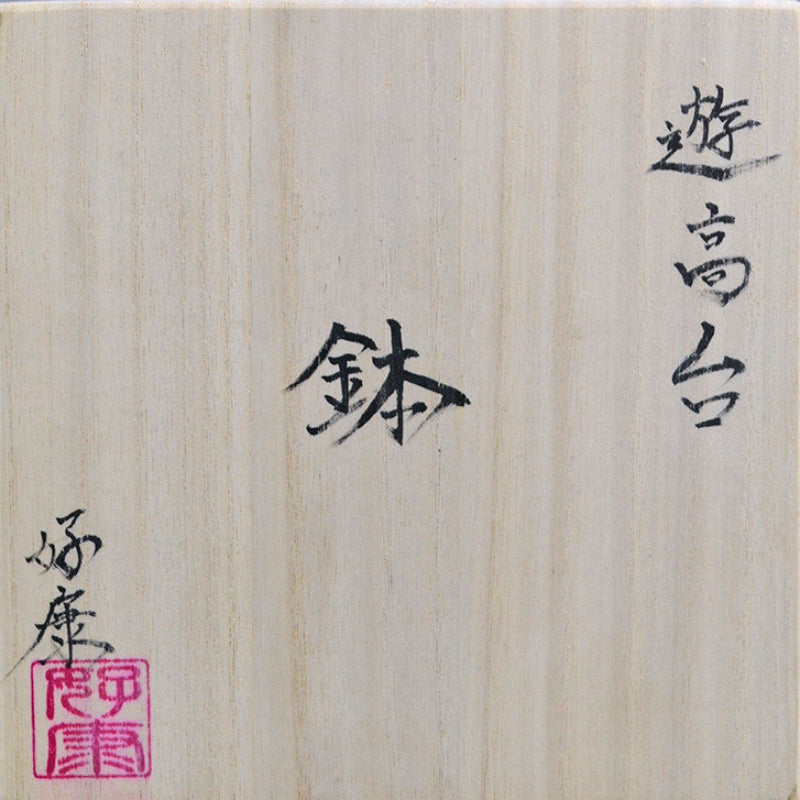 遊高台
鉢
好康
好康